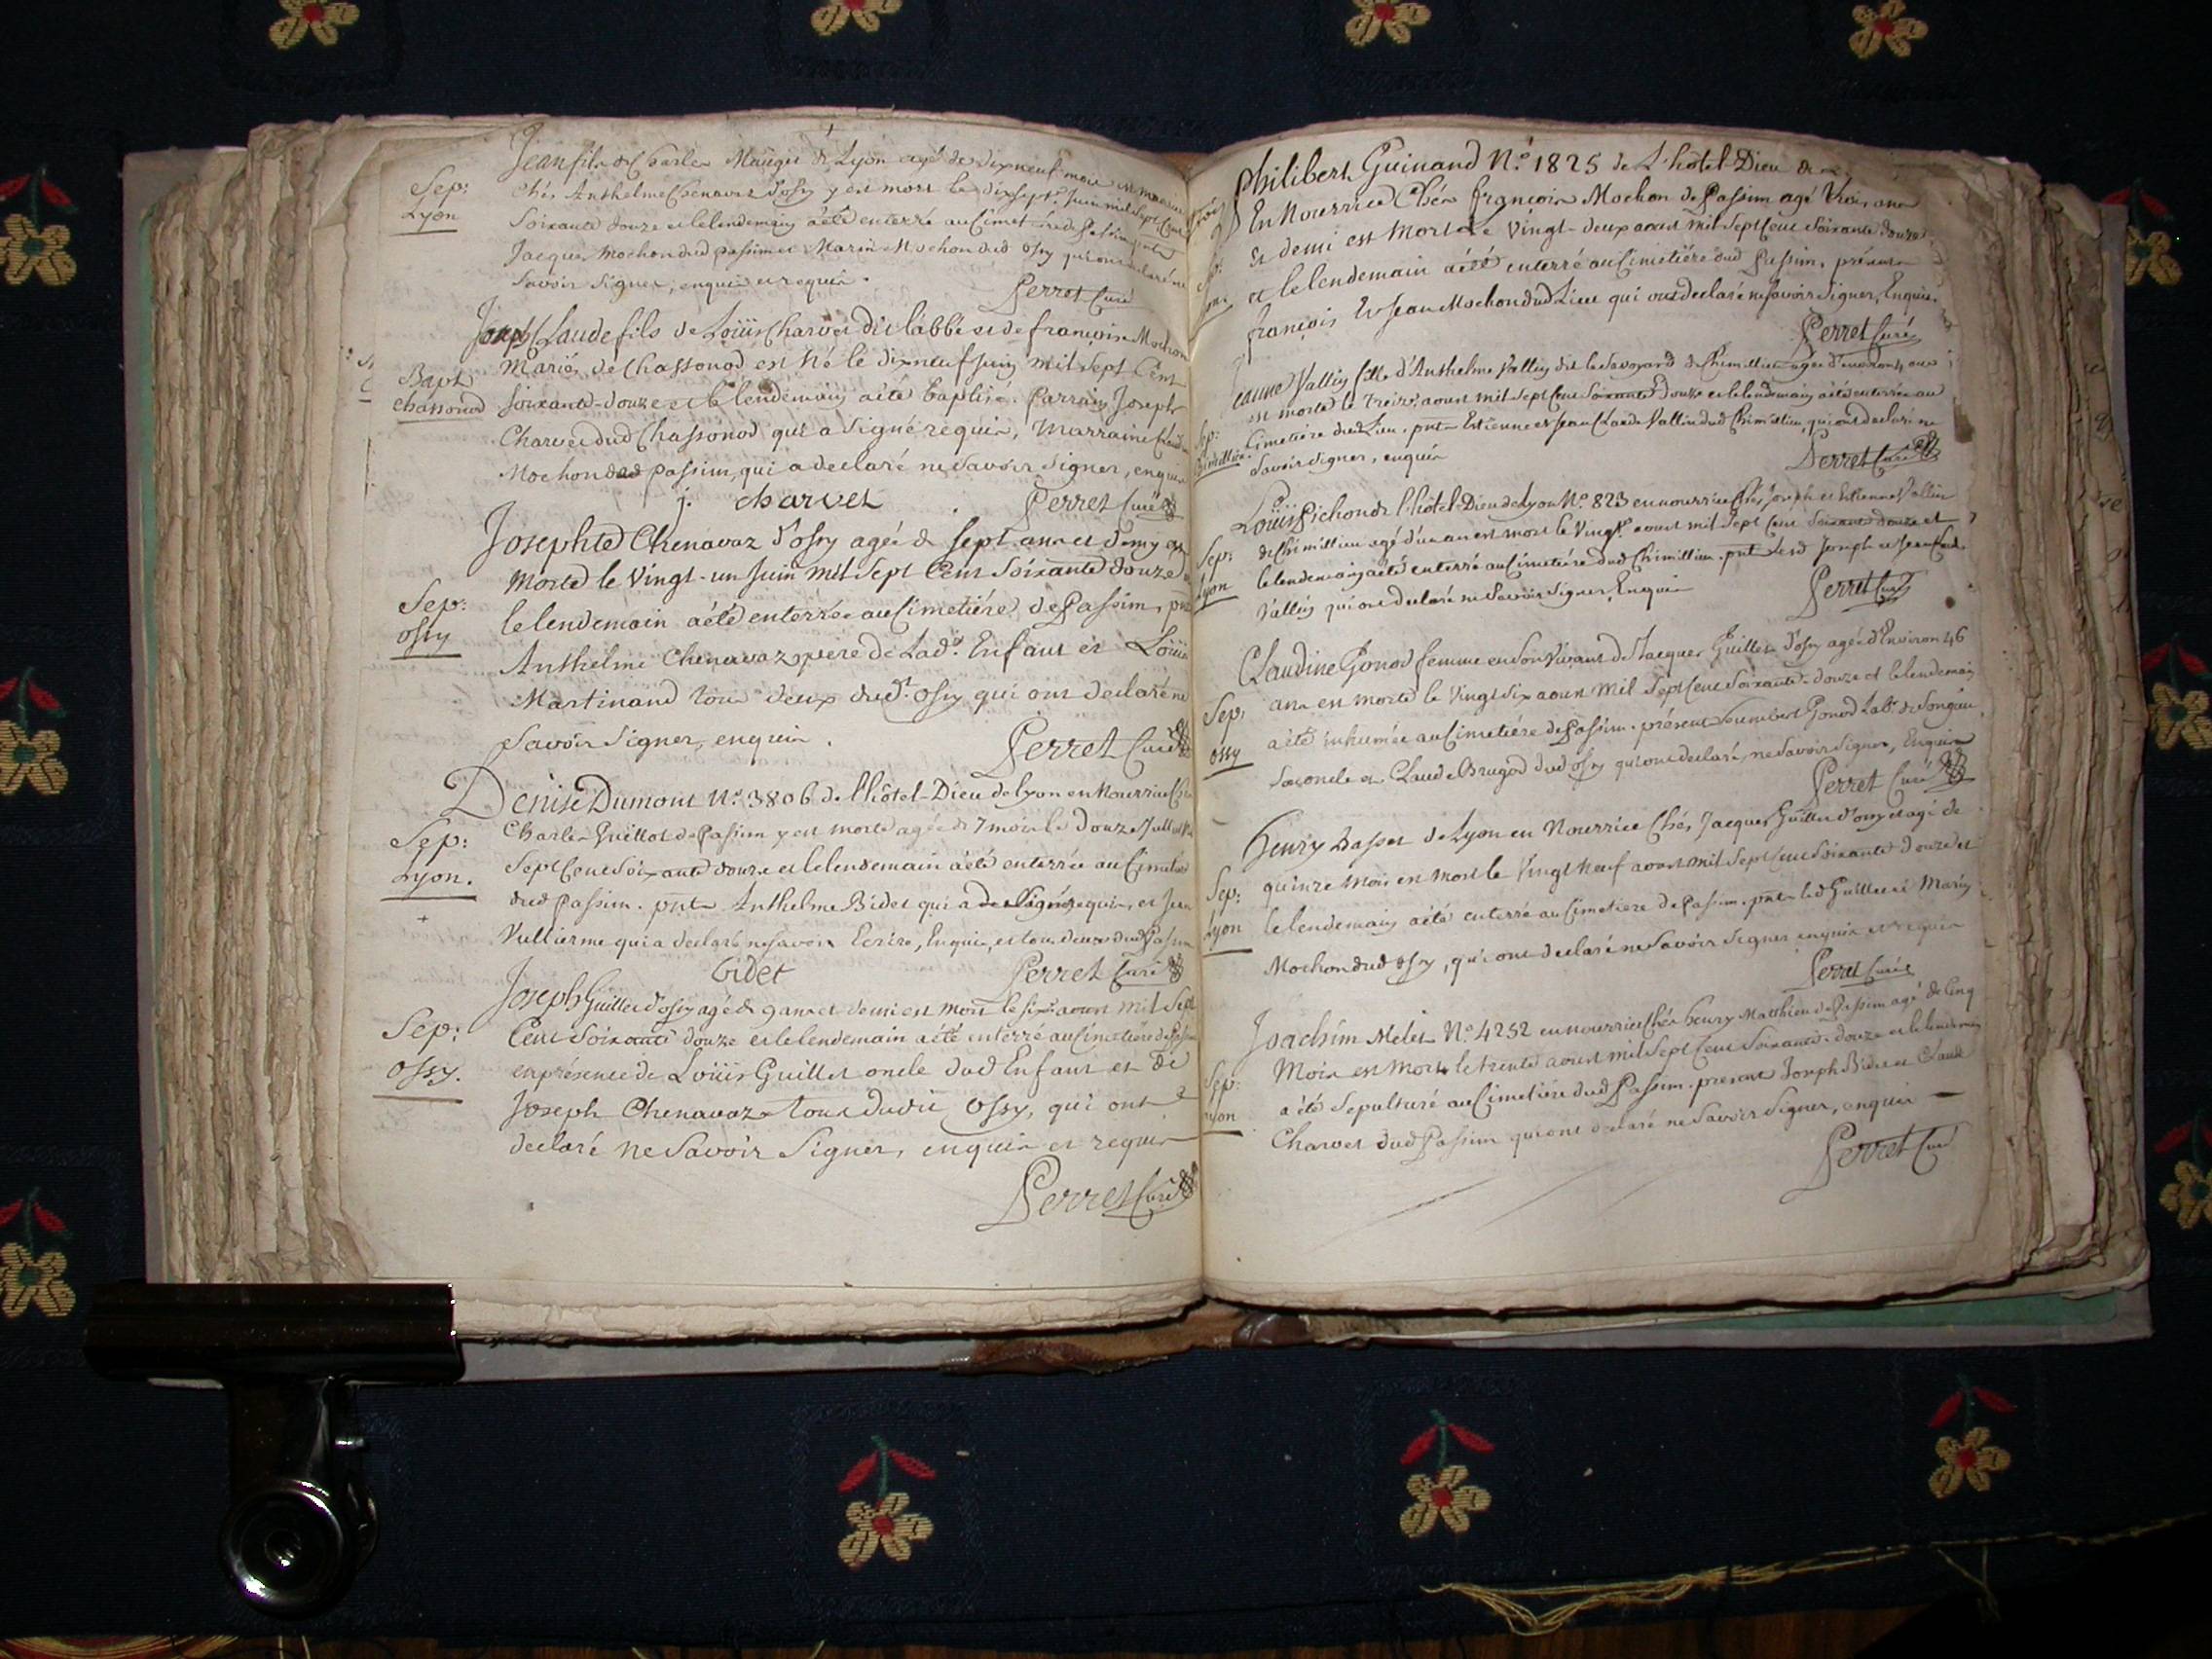 Jean fils de Charles Maugis de Lyon agé de dixneuf mois en nourrice
Sep: Lyon
Chés Anthelme Chenavaz d'ossy y est mort le dixsept.e Juin mil sept Cent
Soixante douze et le lendemain a été enterré au Cimetiére de Passim pnts
Jacques Mochon dud passim et Marin Mochon dud ossy qui ont declaré ne
Savoir Signer, enquis et requis.
Perret Curé
Joseph Claude fils de Loüis Charvet dit l'abbé et de françoise Mochon
Bapt Chassonod
Mariés de Chassonod est né le dixneuf Juin mil sept Cent
soixante-douze et le lendemain a été baptisé. Parrain Joseph
Charvet dud Chassonod qui a signé requis, Marraine
Mochon dud passim, qui a declaré ne savoir signer, enquise
j. charvet Perret Curé
Josephte Chenavaz d'ossy agée de sept ans et demy est
Sep: ossy
Morte le Vingt-un Juin mil sept Cent Soixante douze
le lendemain a été enterrée au Cimetiére de Passim, pnts
Anthelme Chenavaz pere de Lad.e Enfant et Loüis
Martinand tous deux dud.t ossy qui ont declaré ne
Savoir signer, enquis.
Perret Curé
Denise Dumont N.o 3806 de l'hôtel-Dieu de lyon en Nourrice Chés
Sep: Lyon.
Charles Guillot de Passim y est morte agée de 7 mois le douze Juillet Mil
Sept Cent Soixante douze et le lendemain a été enterrée au Cimetiére
dud passim. pnts Anthelme Bidet qui a signé requis, et Jean
Vullierme qui a declaré ne savoir Ecrire, Enquis, et tous deux dud Passim
bidet Perret Curé
Joseph Guillet d'ossy agé de 9 ans et demi est mort le six aoust mil sept
Sep: ossy.
Cent Soixante douze et le lendemain a été enterré au Cimetiére de Passim
en présence de Loüis Guillet oncle dud Enfant et de
Joseph Chenavaz tous dudit ossy, qui ont
declaré ne Savoir Signer, enquis et requis
Perret Curé
Philibert Guinand N.o 1825 de L'hôtel-Dieu de
En Nourrice Chés françois Mochon de Passim agé Trois ans
et demi est Mort Le Vingt-deux aoust mil Sept Cent Soixante douze
et le lendemain a été enterré au Cimetiére dud Passim. présents
françois Et Jean Mochon dud Lieu qui ont declaré ne savoir Signer, Enquis.
Perret Curé
Jeanne Vallin fille d'Anthelme Vallin dit le Savoyard de Chimillieu agée d'environ 4 ans
est morte le Treize aoust mil sept Cent Soixante Douze et le lendemain a été enterrée au
Sep: Chimillieu.
Cimetiére dud Lieu. pnts Estienne et Jean Claude Vallin dud Chimillieu, qui ont declaré ne
Savoir signer, enquis
Perret Curé
Loüis Pichon de l'hôtel-Dieu de Lyon N.o 823 en nourrice Chés Joseph et Estienne Vallin
Sep: Lyon
de Chimillieu agé d'un an est mort le Vingt.e aoust mil Sept Cent Soixante douze et
le lendemain a été enterré au Cimetiére dud Chimillieu. pnts Lesd Joseph et Jean Claude
Vallin qui ont declaré ne Savoir Signer, Enquis
Perret Curé
Claudine Gonod femme en son Vivant de Jacques Guillet d'ossy agée d'Environ 46
Sep: ossy
ans est morte le Vingt six aoust Mil Sept Cent Soixante-douze et le lendemain
a été inhumée au Cimetiére de Passim. présents Gonod Lab.r de Songieu
Son oncle et Claude Brugod dud ossy qui ont declaré, ne Savoir Signer, Enquis
Perret Curé
Henry Basset de Lyon en Nourrice Chés Jacques Guillet d'ossy et agé de
Sep: Lyon
quinze Mois est mort le Vingt neuf aoust mil Sept Cent Soixante douze et
le lendemain a été enterré au Cimetiere de Passim. pnts led Guillet et Marin
Mochon dud ossy, qui ont declaré ne Savoir Signer enquis et requis
Perret Curé
Joachim Melet N.o 4252 en nourrice Chés henry Matthieu de Passim agé de Cinq
Sep: Lyon
Mois est Mort le trente aoust mil Sept Cent Soixante-douze et le lendemain
a été Sepulturé au Cimetiére dud Passim. presents Joseph Bidet et Claude
Charvet dud Passim qui ont declaré ne Savoir Signer, enquis
Perret Curé